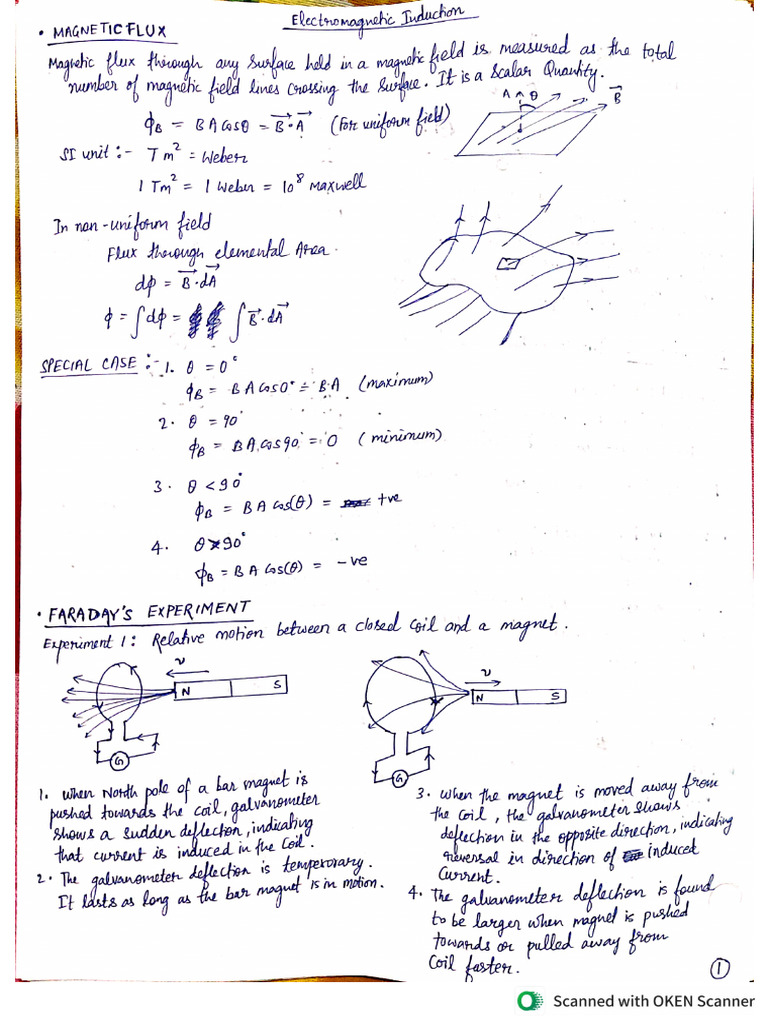 Electromagnetic Induction
• MAGNETIC FLUX
Magnetic flux through any surface held in a magnetic field is measured as the total
number of magnetic field lines crossing the surface. It is a Scalar Quantity.
A θ B⃗
ϕ_B = BA cosθ = B⃗·A⃗ (for uniform field)
SI unit :- Tm² = Weber
1 Tm² = 1 Weber = 10⁸ Maxwell
In non-uniform field
Flux through elemental Area.
dϕ = B⃗·dA⃗
ϕ = ∫dϕ = ∫B⃗·dA⃗
SPECIAL CASE :- 1. θ = 0°
ϕ_B = BA cos0° = B.A (maximum)
2. θ = 90°
ϕ_B = BA cos90° = 0 (minimum)
3. θ < 90°
ϕ_B = BA cos(θ) = +ve
4. θ > 90°
ϕ_B = BA cos(θ) = -ve
• FARADAY'S EXPERIMENT
Experiment 1: Relative motion between a closed coil and a magnet.
v
N S
G
v
N S
G
1. When North pole of a bar magnet is
pushed towards the coil, galvanometer
shows a sudden deflection, indicating
that current is induced in the coil.
2. The galvanometer deflection is temporary.
It lasts as long as the bar magnet is in motion.
3. When the magnet is moved away from
the coil, the galvanometer shows
deflection in the opposite direction, indicating
reversal in direction of induced
current.
4. The galvanometer deflection is found
to be larger when magnet is pushed
towards or pulled away from
coil faster.
1
Scanned with OKEN Scanner